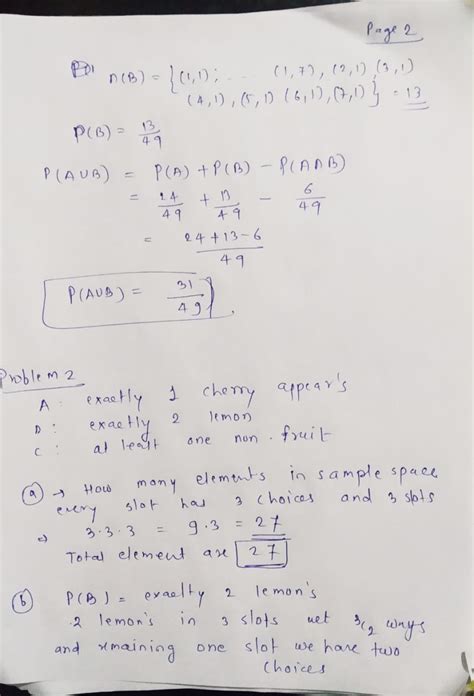 Page 2
n(B) = {(1,1); .... (1,7), (2,1), (3,1)
(4,1), (5,1) (6,1), (7,1)} = 13
P(B) = 13/49
P(A∪B) = P(A) + P(B) - P(A∩B)
= 24/49 + 13/49 - 6/49
= 24+13-6/49
P(A∪B) = 31/49
Problem 2
A: exactly 1 cherry appear's
B: exactly 2 lemon
C: at least one non-fruit
(a) → How many elements in sample space
every slot has 3 choices and 3 slots
⇒ 3.3.3 = 9.3 = 27
Total element are 27
(b) P(B) = exaelty 2 lemon's
2 lemon's in 3 slots 3C2 ways
and remaining one slot we have two
choices